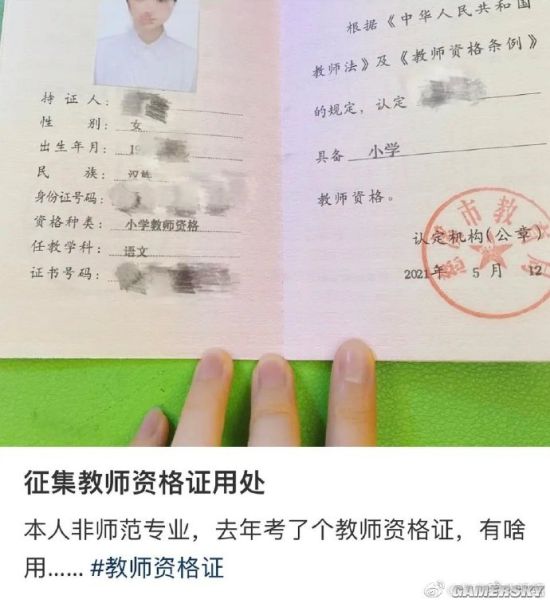 持证人：
性别：女
出生年月：19
民族：汉族
身份证号码：
资格种类：小学教师资格
任教学科：语文
证书号码：
根据《中华人民共和国
教师法》及《教师资格条例》
的规定，认定
具备 小学
教师资格。
市教
认定机构(公章)
2021年 5 月 12
征集教师资格证用处
本人非师范专业，去年考了个教师资格证，有啥
用...... #教师资格证
GAMERSKY